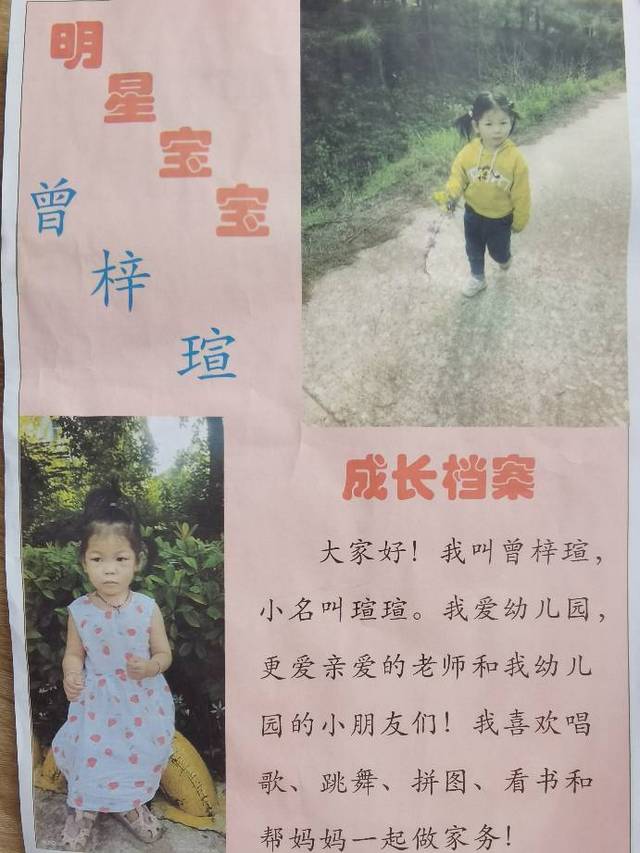 明星宝宝
曾梓瑄
成长档案
大家好！我叫曾梓瑄，
小名叫瑄瑄。我爱幼儿园，
更爱亲爱的老师和我幼儿
园的小朋友们！我喜欢唱
歌、跳舞、拼图、看书和
帮妈妈一起做家务！